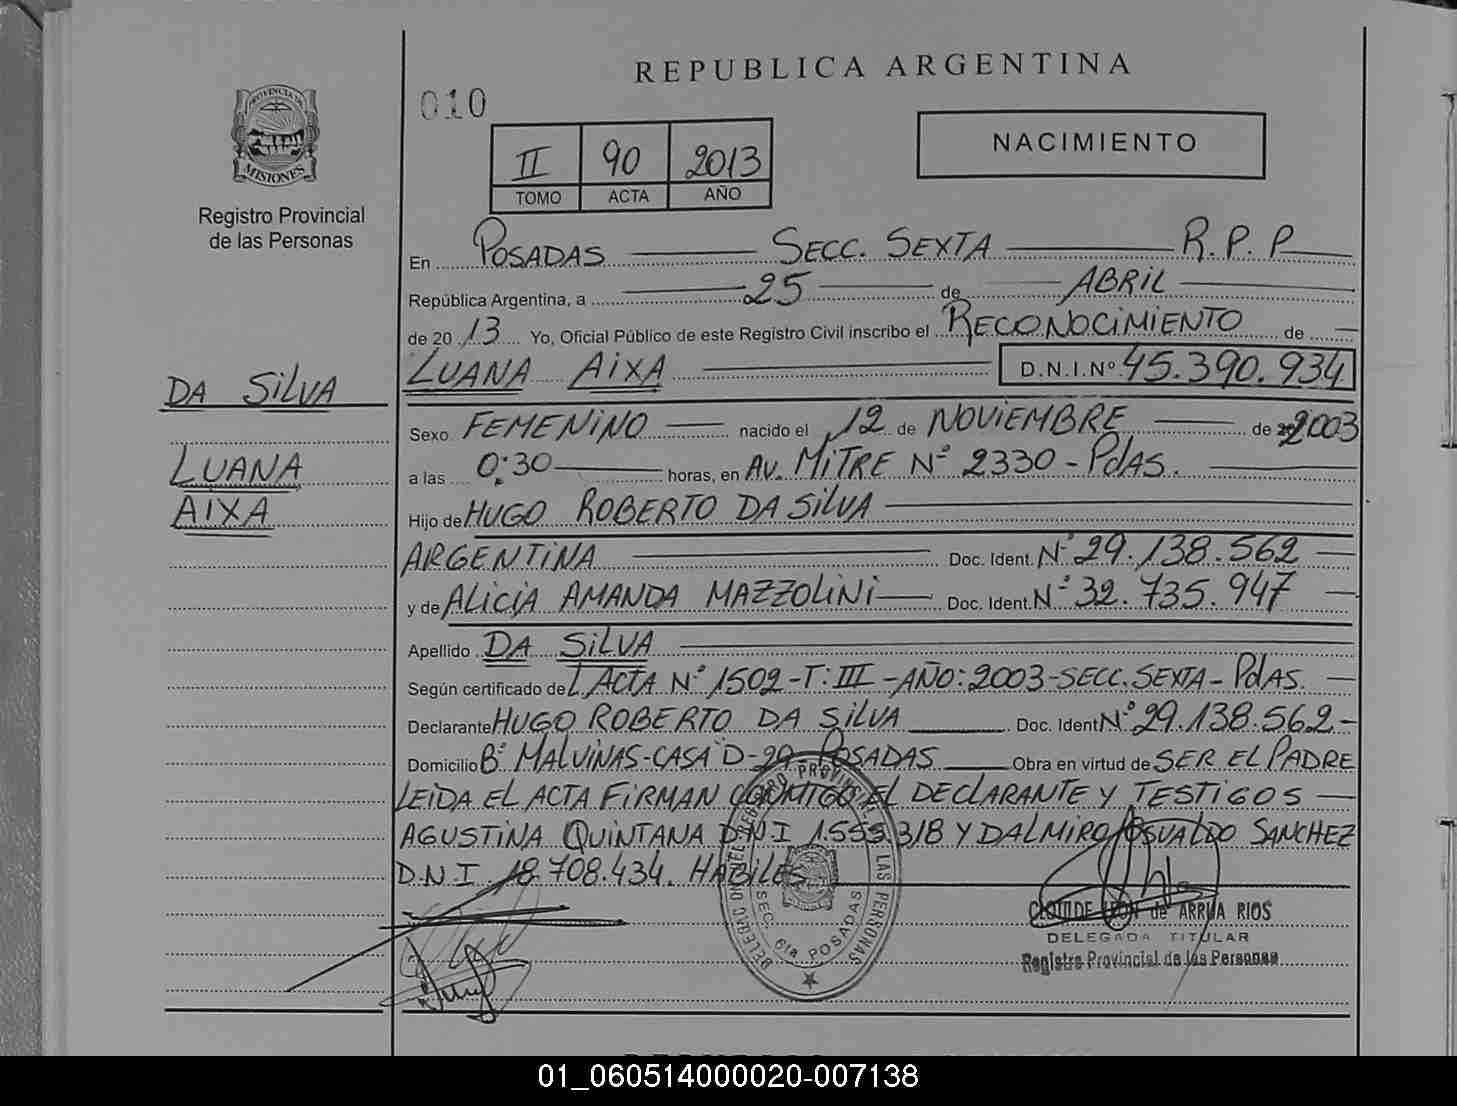 REPUBLICA ARGENTINA
010
PROVINCIA DE
MISIONES
Registro Provincial
de las Personas
II 90 2013
TOMO ACTA AÑO
NACIMIENTO
En POSADAS SECC. SEXTA R.P.P
República Argentina, a 25 de ABRIL
de 20 13 Yo, Oficial Público de este Registro Civil inscribo el RECONOCIMIENTO de
LUANA AIXA D.N.I.Nº 45.390.934
DA SILVA
LUANA
AIXA
Sexo FEMENINO nacido el 12 de NOVIEMBRE de 2003
a las 0:30 horas, en AV. MITRE Nº 2330 - PdAS.
Hijo de HUGO ROBERTO DA SILVA
ARGENTINA Doc. Ident. Nº 29.138.562
y de ALICIA AMANDA MAZZOLINI Doc. Ident. Nº 32.735.947
Apellido DA SILVA
Según certificado de L. ACTA Nº 1502-T: III - AÑO: 2003-SECC. SEXTA - PdAS.
Declarante HUGO ROBERTO DA SILVA Doc. Ident Nº 29.138.562-
Domicilio Bº MALVINAS-CASA D-29- POSADAS Obra en virtud de SER EL PADRE
LEIDA EL ACTA FIRMAN CONMIGO EL DECLARANTE Y TESTIGOS
AGUSTINA QUINTANA D.N.I 1.559.318 Y DALMIRO OSVALDO SANCHEZ
D.N.I. 18.708.434. HABILES
REGISTRO PROVINCIAL DE LAS PERSONAS
SEC. 6ta POSADAS
CLOTILDE LEON de ARRUA RIOS
DELEGADA TITULAR
Registro Provincial de las Personas
01_060514000020-007138